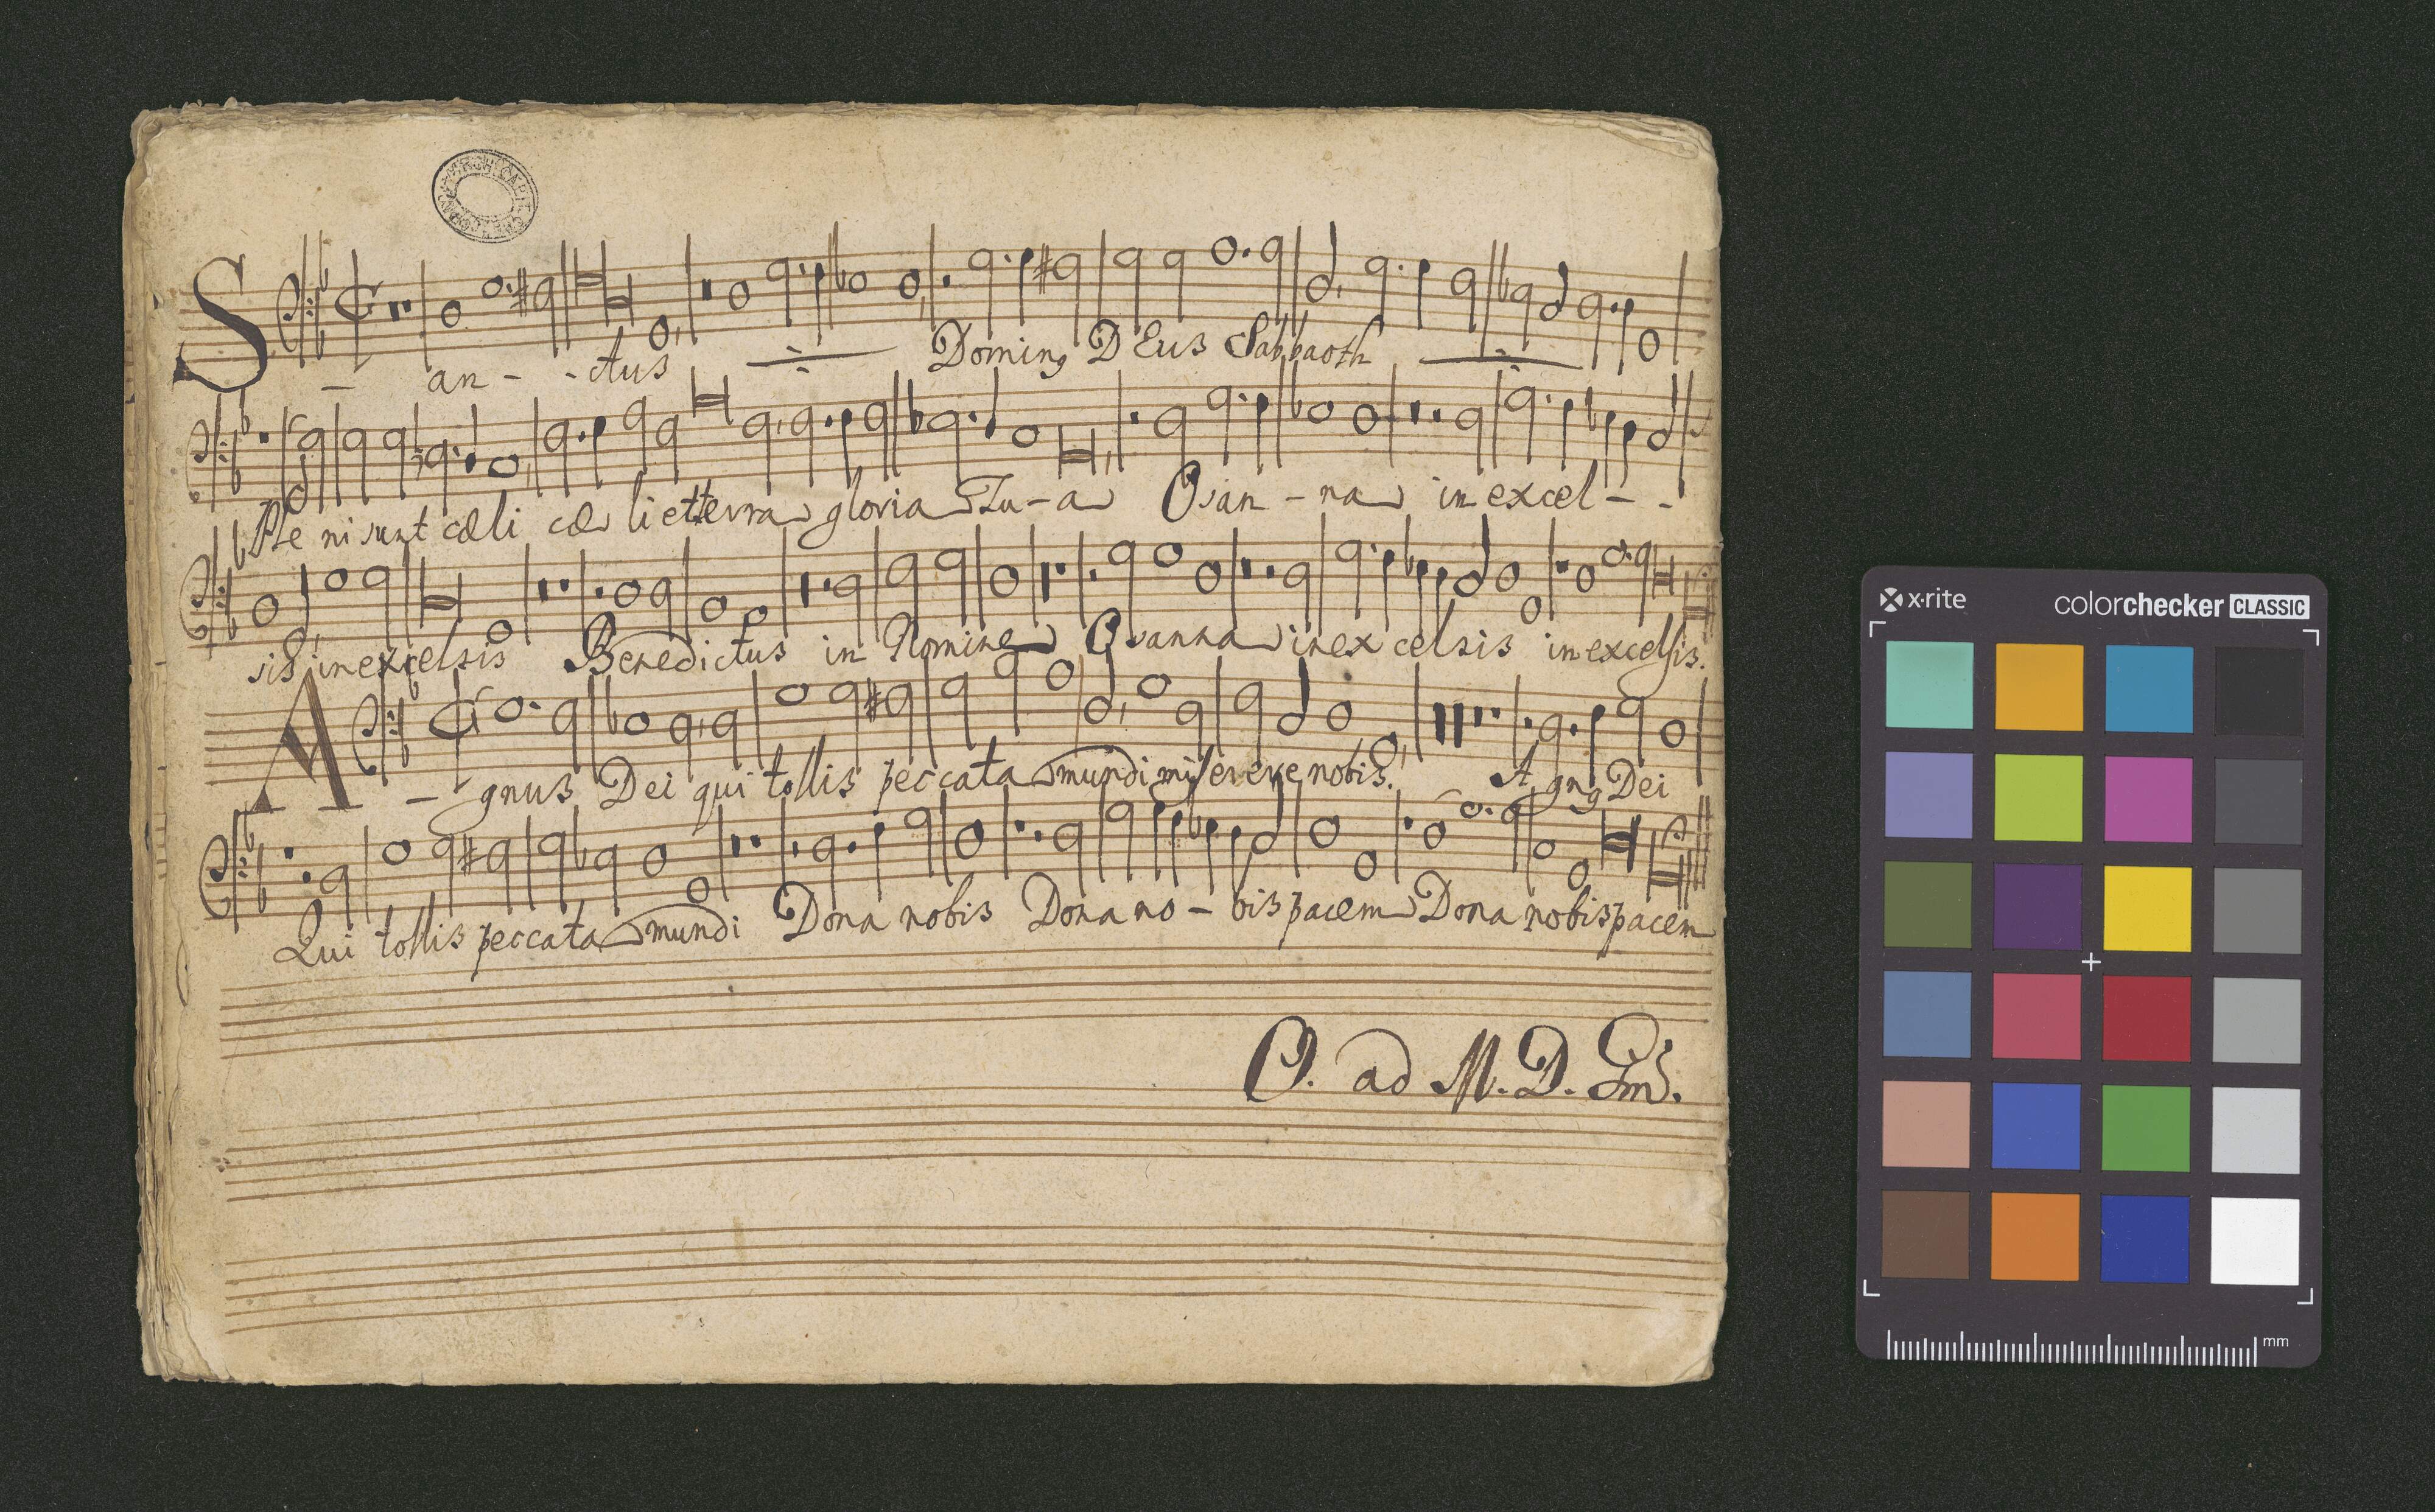 S - an - - ctus Domin9 DEus Sabbaoth
Ple ni sunt cæli cæ li et terra gloria Tu - a Osan - na in excel - -
sis in excelsis Benedictus in Nomine Osanna in ex celsis in excelsis.
A - - - gnus Dei qui tollis peccata mundi miserere nobis. A gn9 Dei
Qui tollis peccata mundi Dona nobis Dona no - bis pacem Dona nobis pacem
O. ad M. D. G
x·rite colorchecker CLASSIC
mm